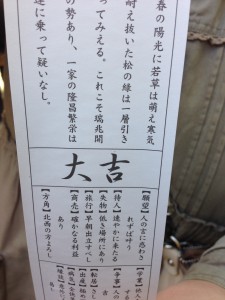 春の陽光に若草は萌え寒気
耐え抜いた松の緑は一層引き
ってみえる。これこそ瑞兆開
の勢あり、一家の隆昌繁栄は
運に乗って疑いなし。
大吉
【願望】人の言に惑わさ
れずば叶う
【待人】速やかに来たる
【失物】低き場所にあり
【旅行】早朝出立すべし
【商売】確かなる利益
あり
【方角】北西の方よろし